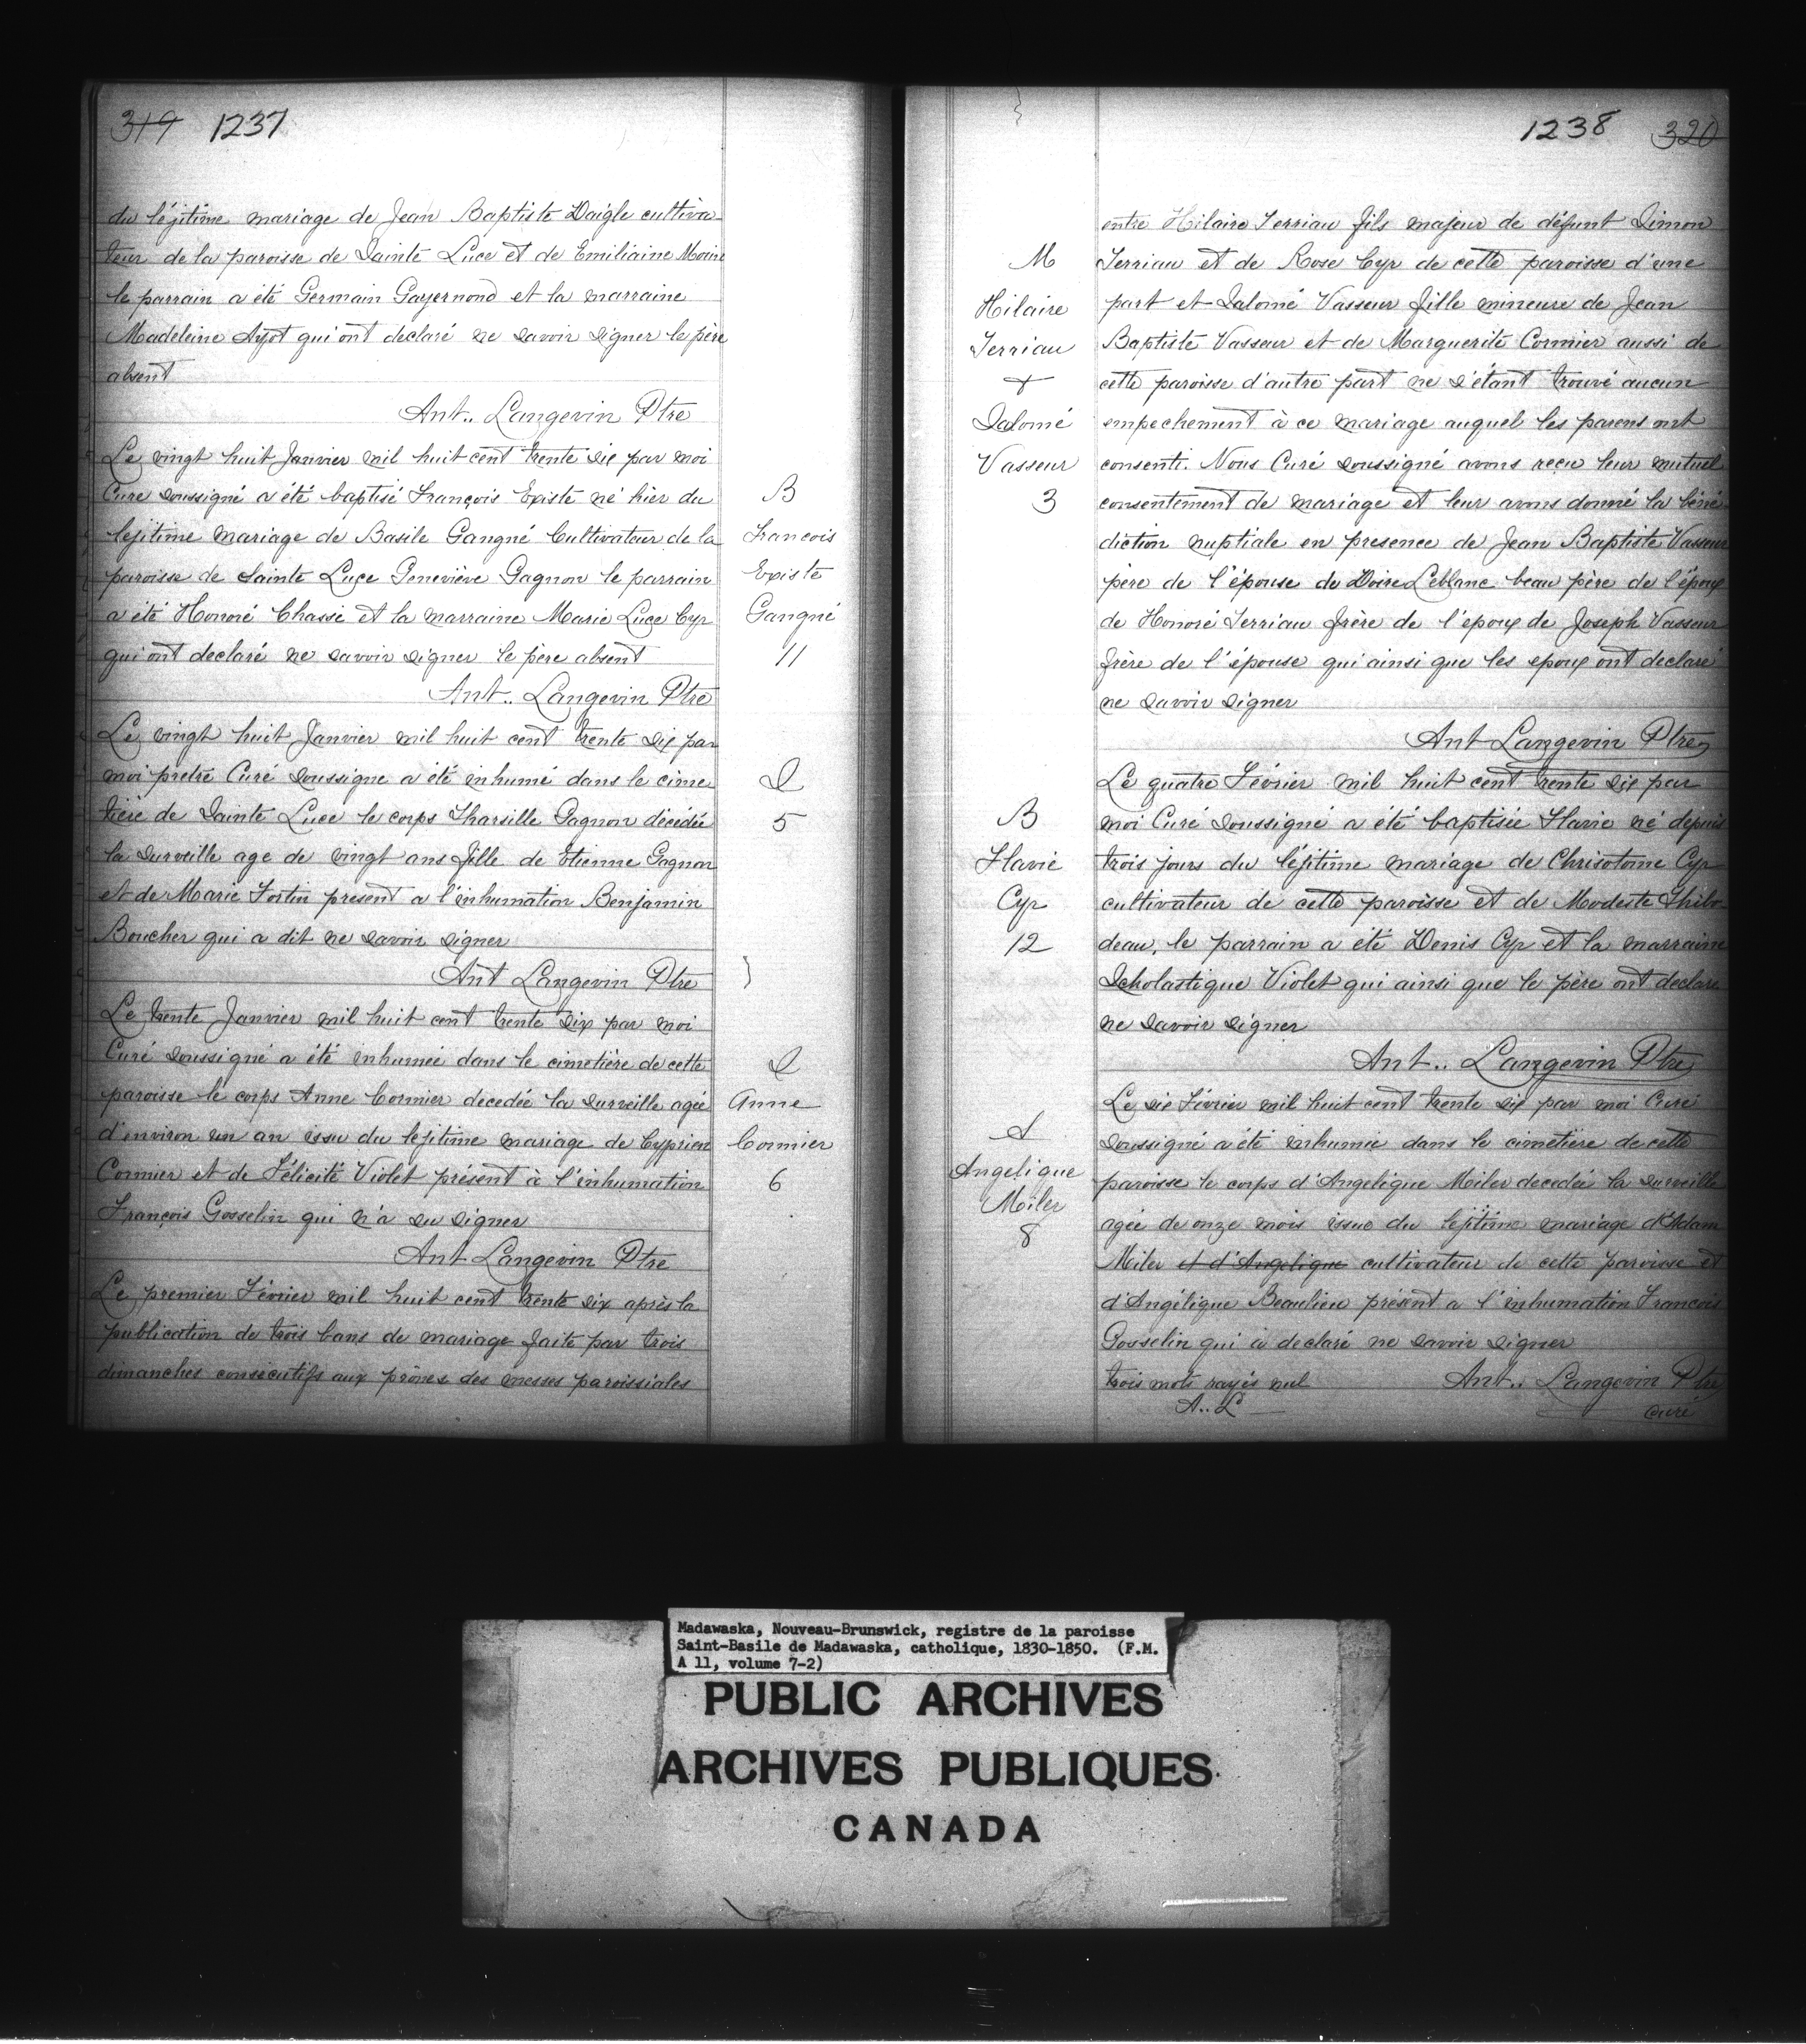 319 1237
du légitime mariage de Jean Baptiste Daigle cultiva
teur de la paroisse de Sainte Luce et de Emiliaine Morin
le parrain a été Germain Gayernond et la marraine
Madeleine Ayot qui ont declaré ne savoir signer le père
absent
Ant.. Langevin Ptre
Le vingt huit Janvier mil huit cent trente six par moi
Curé soussigné a été baptisé François Existe né hier du
legitime mariage de Basile Gangné Cultivateur de la
paroisse de Sainte Luce Geneviève Gagnon le parrain
a été Honoré Chassé et la marraine Marie Luce Cyr
qui ont declaré ne savoir signer le père absent
Ant.. Langevin Ptre
B
Francois
Existe
Gangné
11
Le vingt huit Janvier mil huit cent trente six par
moi pretre Curé soussigné a été inhumé dans le cime
tière de Sainte Luce le corps Tharsille Gagnon décédée
la surveille age de vingt ans fille de Etienne Gagnon
et de Marie Fortin present a l'inhumation Benjamin
Boucher qui a dit ne savoir signer
Ant Langevin Ptre
S
5
Le trente Janvier mil huit cent trente six par moi
Curé soussigné a été inhumée dans le cimetière de cette
paroisse le corps Anne Cormier decedée la surveille agée
d'environ un an issu du legitime mariage de Cyprien
Cormier et de Félicité Violet présent à l'inhumation
François Gosselin qui n'a su signer
Ant Langevin Ptre
S
Anne
Cormier
6
Le premier Février mil huit cent trente six après la
publication de trois bans de mariage faite par trois
dimanches consécutifs aux prônes des messes paroissiales
1238 320
entre Hilaire Terriau fils majeur de défunt Simon
Terriau et de Rose Cyr de cette paroisse d'une
part et Salomé Vasseur fille mineure de Jean
Baptiste Vasseur et de Marguerite Cormier aussi de
cette paroisse d'autre part ne s'étant trouvé aucun
empechement à ce mariage auquel les parens ont
consenti. Nous Curé soussigné avons recu leur mutuel
consentement de mariage et leur avons donné la béné
diction nuptiale en presence de Jean Baptiste Vasseur
père de l'épouse de Doire Leblanc beau père de l'époux
de Honoré Terriau frère de l'époux de Joseph Vasseur
frère de l'épouse qui ainsi que les epoux ont declaré
ne savoir signer
Ant Langevin Ptre
M
Hilaire
Terriau
+
Salomé
Vasseur
3
Le quatre Février mil huit cent trente six par
moi Curé soussigné a été baptisée Flavie né depuis
trois jours du légitime mariage de Chrisotome Cyr
cultivateur de cette paroisse et de Modeste Thibo
deau, le parrain a été Denis Cyr et la marraine
Scholastique Violet qui ainsi que le père ont declare
ne savoir signer
Ant.. Langevin Ptre
B
Flavie
Cyr
12
Le six Février mil huit cent trente six par moi Curé
soussigné a été inhumée dans le cimetière de cette
paroisse le corps d'Angelique Miler decedée la surveille
agée de onze mois issue du legitime mariage d'Adam
Miler et d'Angelique cultivateur de cette paroisse et
d'Angélique Beaulieu présent a l'inhumation Francois
Gosselin qui a declaré ne savoir signer
trois mots rayés nul Ant.. Langevin Ptre
A.. L curé
S
Angelique
Miler
8
Madawaska, Nouveau-Brunswick, registre de la paroisse
Saint-Basile de Madawaska, catholique, 1830-1850. (F.M.
A 11, volume 7-2)
PUBLIC ARCHIVES
ARCHIVES PUBLIQUES
CANADA